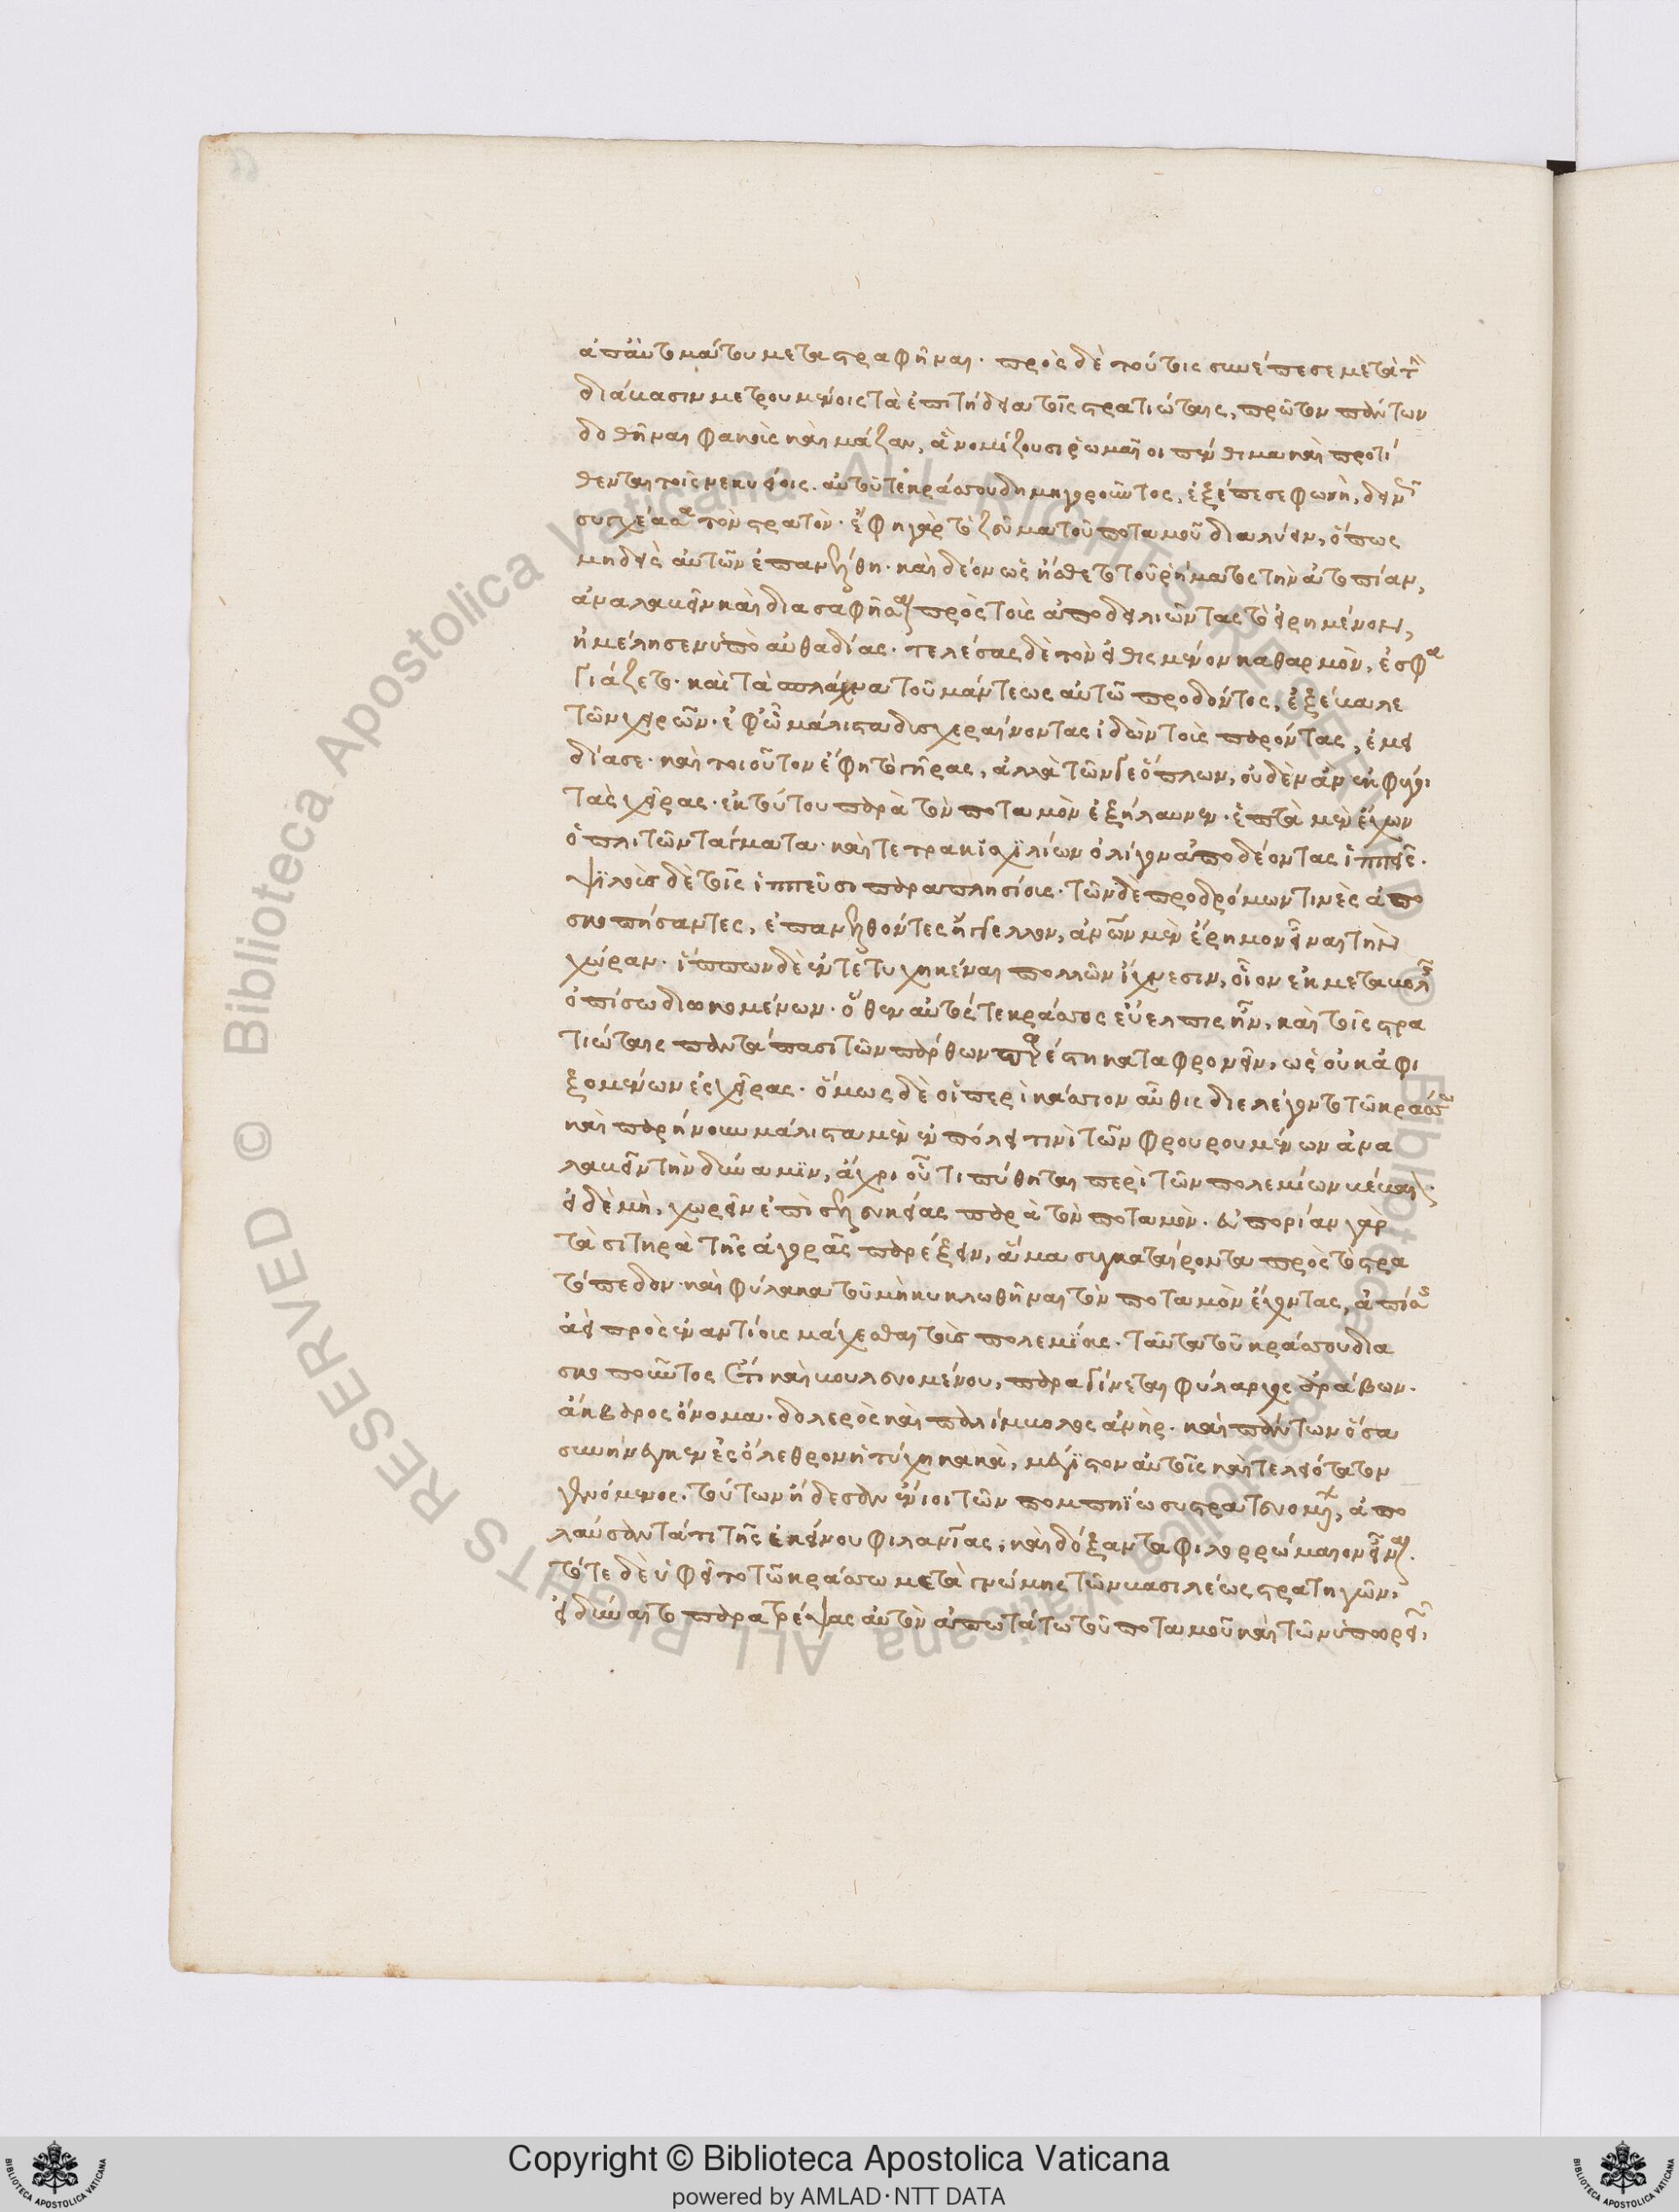 ἀπ' αὐτομάτου μεταστραφῆναι. πρὸς δὲ τούτοις συνέπεσε μετὰ τὴν
διάβασιν μετρουμένοις τὰ ἐπιτήδεια τοῖς στρατιώταις, πρῶτον πάντων
δοθῆναι φακοὺς καὶ μάζαν, ἃ νομίζουσι ῥωμαῖοι πένθιμα καὶ προτί
θενται τοῖς νεκυσίοις. αὐτοῦ τε κράσσου δημηγοροῦντος, ἐξέπεσε φωνὴ, δεινῶς
συγχέασα τὸν στρατόν. ἔφη γὰρ τὸ ζεῦγμα τοῦ ποταμοῦ διαλύειν, ὅπως
μηδεὶς αὐτῶν ἐπανέλθη. καὶ δέον ὡς ᾔσθετο τοῦ ῥήματος τὴν ἀτοπίαν,
ἀναλαβεῖν καὶ διασαφῆσαι πρὸς τοὺς ἀποδειλιῶντας τὸ εἰρημένον,
ἠμέλησεν ὑπὸ αὐθαδίας. τελέσας δὲ τὸν εἰθισμένον καθαρμὸν, ἐσφα
γιάζετο. καὶ τὰ σπλάγχνα τοῦ μάντεως αὐτῷ προδόντος, ἐξέβαλε
τῶν χειρῶν. ἐφ' ᾧ μάλιστα δυσχεραίνοντας ἰδὼν τοὺς παρόντας, ἐμει
δίασε. καὶ τοιοῦτον ἔφη τὸ γῆρας, ἀλλὰ τῶν γε ὅπλων, οὐδὲν ἂν ἐκφύγοι
τὰς χεῖρας. ἐκ τούτου παρὰ τὸν ποταμὸν ἐξήλαυνεν. ἑπτὰ μὲν ἔχων
ὁπλιτῶν τάγματα. καὶ τετρακισχιλίων ὀλίγον ἀποδέοντας ἱππεῖς.
ψιλοὺς δὲ τοῖς ἱππεῦσι παραπλησίους. τῶν δὲ προδρόμων τινὲς ἀπὸ
σκοπήσαντες, ἐπανελθόντες ἤγγελλον, ἀνῶν μὲν ἔρημον εἶναι τὴν
χώραν. ἵππων δὲ ἐντετυχηκέναι πολλῶν ἴχνεσιν, οἷον ἐκ μεταβολῆς
ὀπίσω διωκομένων. ὅθεν αὐτός τε κράσσος εὔελπις ἦν, καὶ τοῖς στρα
τιώταις παντάπασι τῶν πάρθων παρέστη καταφρονεῖν, ὡς οὐκ ἀφι
ξομένων ἐς χεῖρας. ὅμως δὲ οἱ περὶ κάσσιον αὖθις διελέγοντο τῶ κράσσω
καὶ παρήνουν μάλιστα μὲν ἐν πόλει τινὶ τῶν φρουρουμένων ἀνα
λαβεῖν τὴν δύναμιν, ἄχρι οὗ τι πύθηται περὶ τῶν πολεμίων βέβαιον.
εἰ δὲ μὴ, χωρεῖν ἐπὶ σελευκείας παρὰ τὸν ποταμόν. εὐπορίαν γὰρ
τὰ σιτηρὰ τῆς ἀγορᾶς παρέξειν, ἅμα συγκαταίροντα πρὸς τὸ στρα
τόπεδον. καὶ φύλακα τοῦ μὴ κυκλωθῆναι τὸν ποταμὸν ἔχοντας, ἀπ' ἴσου
ἀεὶ πρὸς ἐναντίους μάχεσθαι τοῖς πολεμίοις. ταῦτα τοῦ κράσσου δια
σκοποῦντος ἔτι καὶ βουλευομένου, παραγίνεται φύλαρχος ἀράβων.
ἄκβαρος ὄνομα. δολερὸς καὶ παλίμβολος ἀνήρ. καὶ πάντων ὅσα
συνήνεγκεν ἐς ὄλεθρον ἡ τύχη κακὰ, μέγιστον αὐτοῖς καὶ τελειότατον
γενόμενος. τοῦτον ᾔδεσαν ἔνιοι τῶν πομπηίω συστρατευομένων, ἀπο
λαύσαντά τι τῆς ἐκείνου φιλανίας, καὶ δόξαντα φιλορρώμαιον εἶναι.
τότε δὲ ὑφεῖτο τῶ κράσσω μετὰ γνώμης τῶν βασιλέως στρατηγῶν,
εἰ δύναιτο παρατρέψας αὐτὸν ἀπωτάτω τοῦ ποταμοῦ καὶ τῶν ὑπορειῶν,